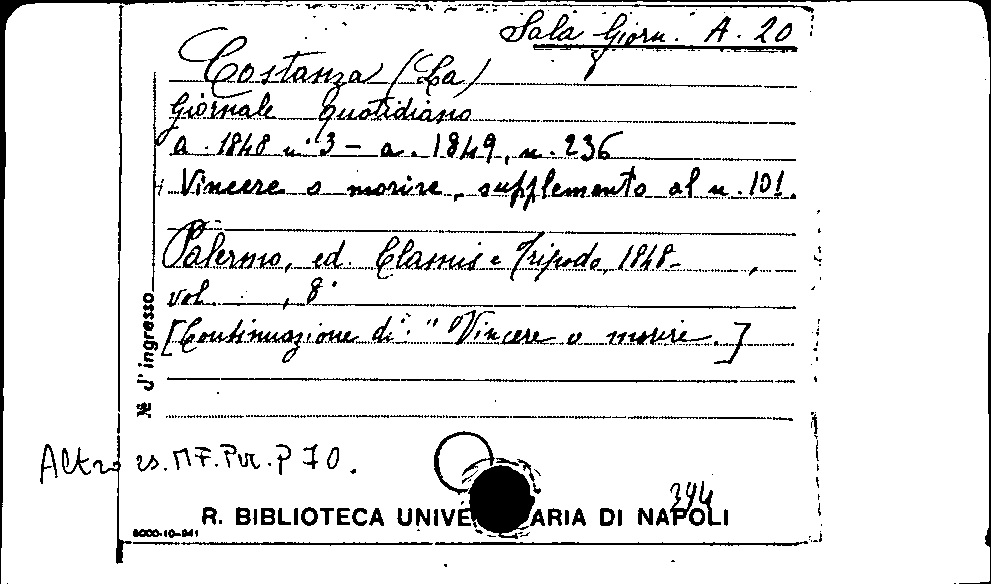 Sala Giorn. A. 20
Costanza (La)
Giornale quotidiano
a. 1848 n. 3 - a. 1849, n. 236
Vincere o morire, supplemento al n. 101.
Palermo, ed. Clamis e Tripodo, 1848- ,
vol. , 8°
[Continuazione di: "Vincere o morire.]
№ d'ingresso
Altro es. MF. Per. P 70.
394
R. BIBLIOTECA UNIVE ARIA DI NAPOLI
6000-10-941